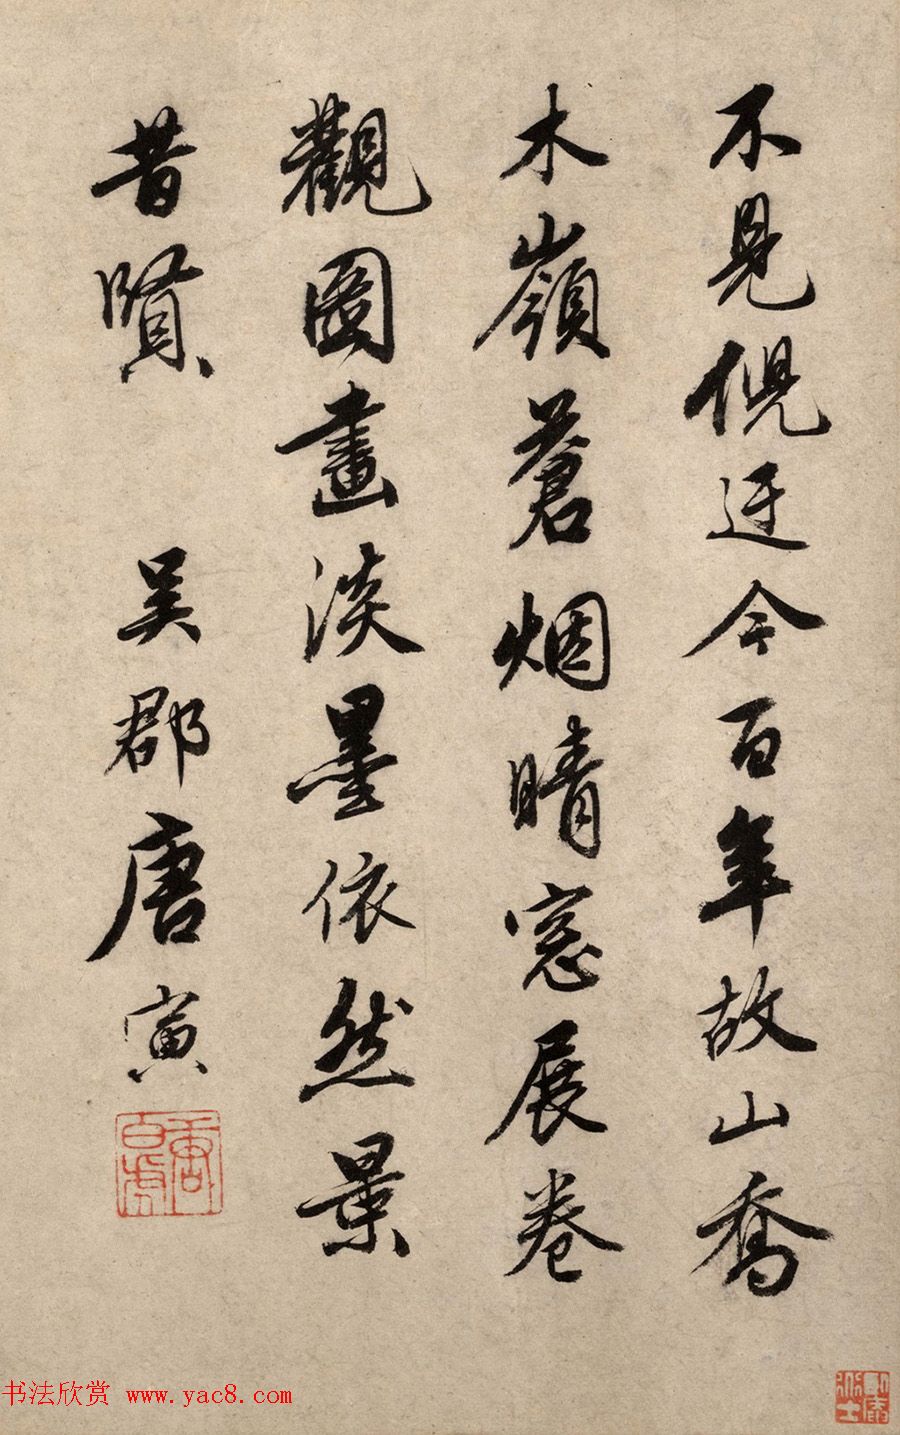 不見倪迂今百年故山喬
木嶺蒼烟晴窓展卷
觀圖畫淡墨依然景
昔賢 吴郡唐寅
唐白虎
书法欣赏 www.yac8.com